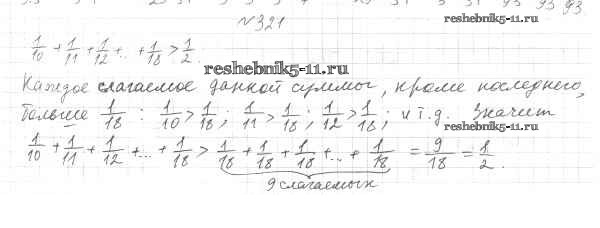 №321
reshebnik5-11.ru
1/10 + 1/11 + 1/12 + .. + 1/18 > 1/2
reshebnik5-11.ru
Каждое слагаемое данной суммы, кроме последнего,
больше 1/18 : 1/10 > 1/18 ; 1/11 > 1/18 ; 1/12 > 1/18 ; и т.д. Значит
reshebnik5-11.ru
1/10 + 1/11 + 1/12 + ... + 1/18 > 1/18 + 1/18 + 1/18 + ... + 1/18 = 9/18 = 1/2 .
9 слагаемых